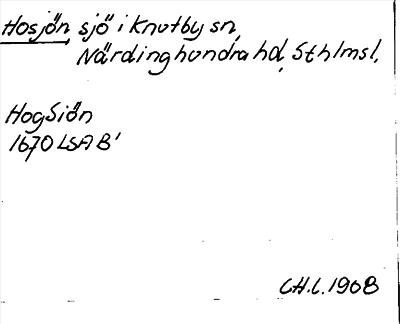 Hosjön, sjö i Knutby sn,
Närdinghundra hd, Sthlmsl,
HogSiön
1670 LSA B'
C.H.L. 1908